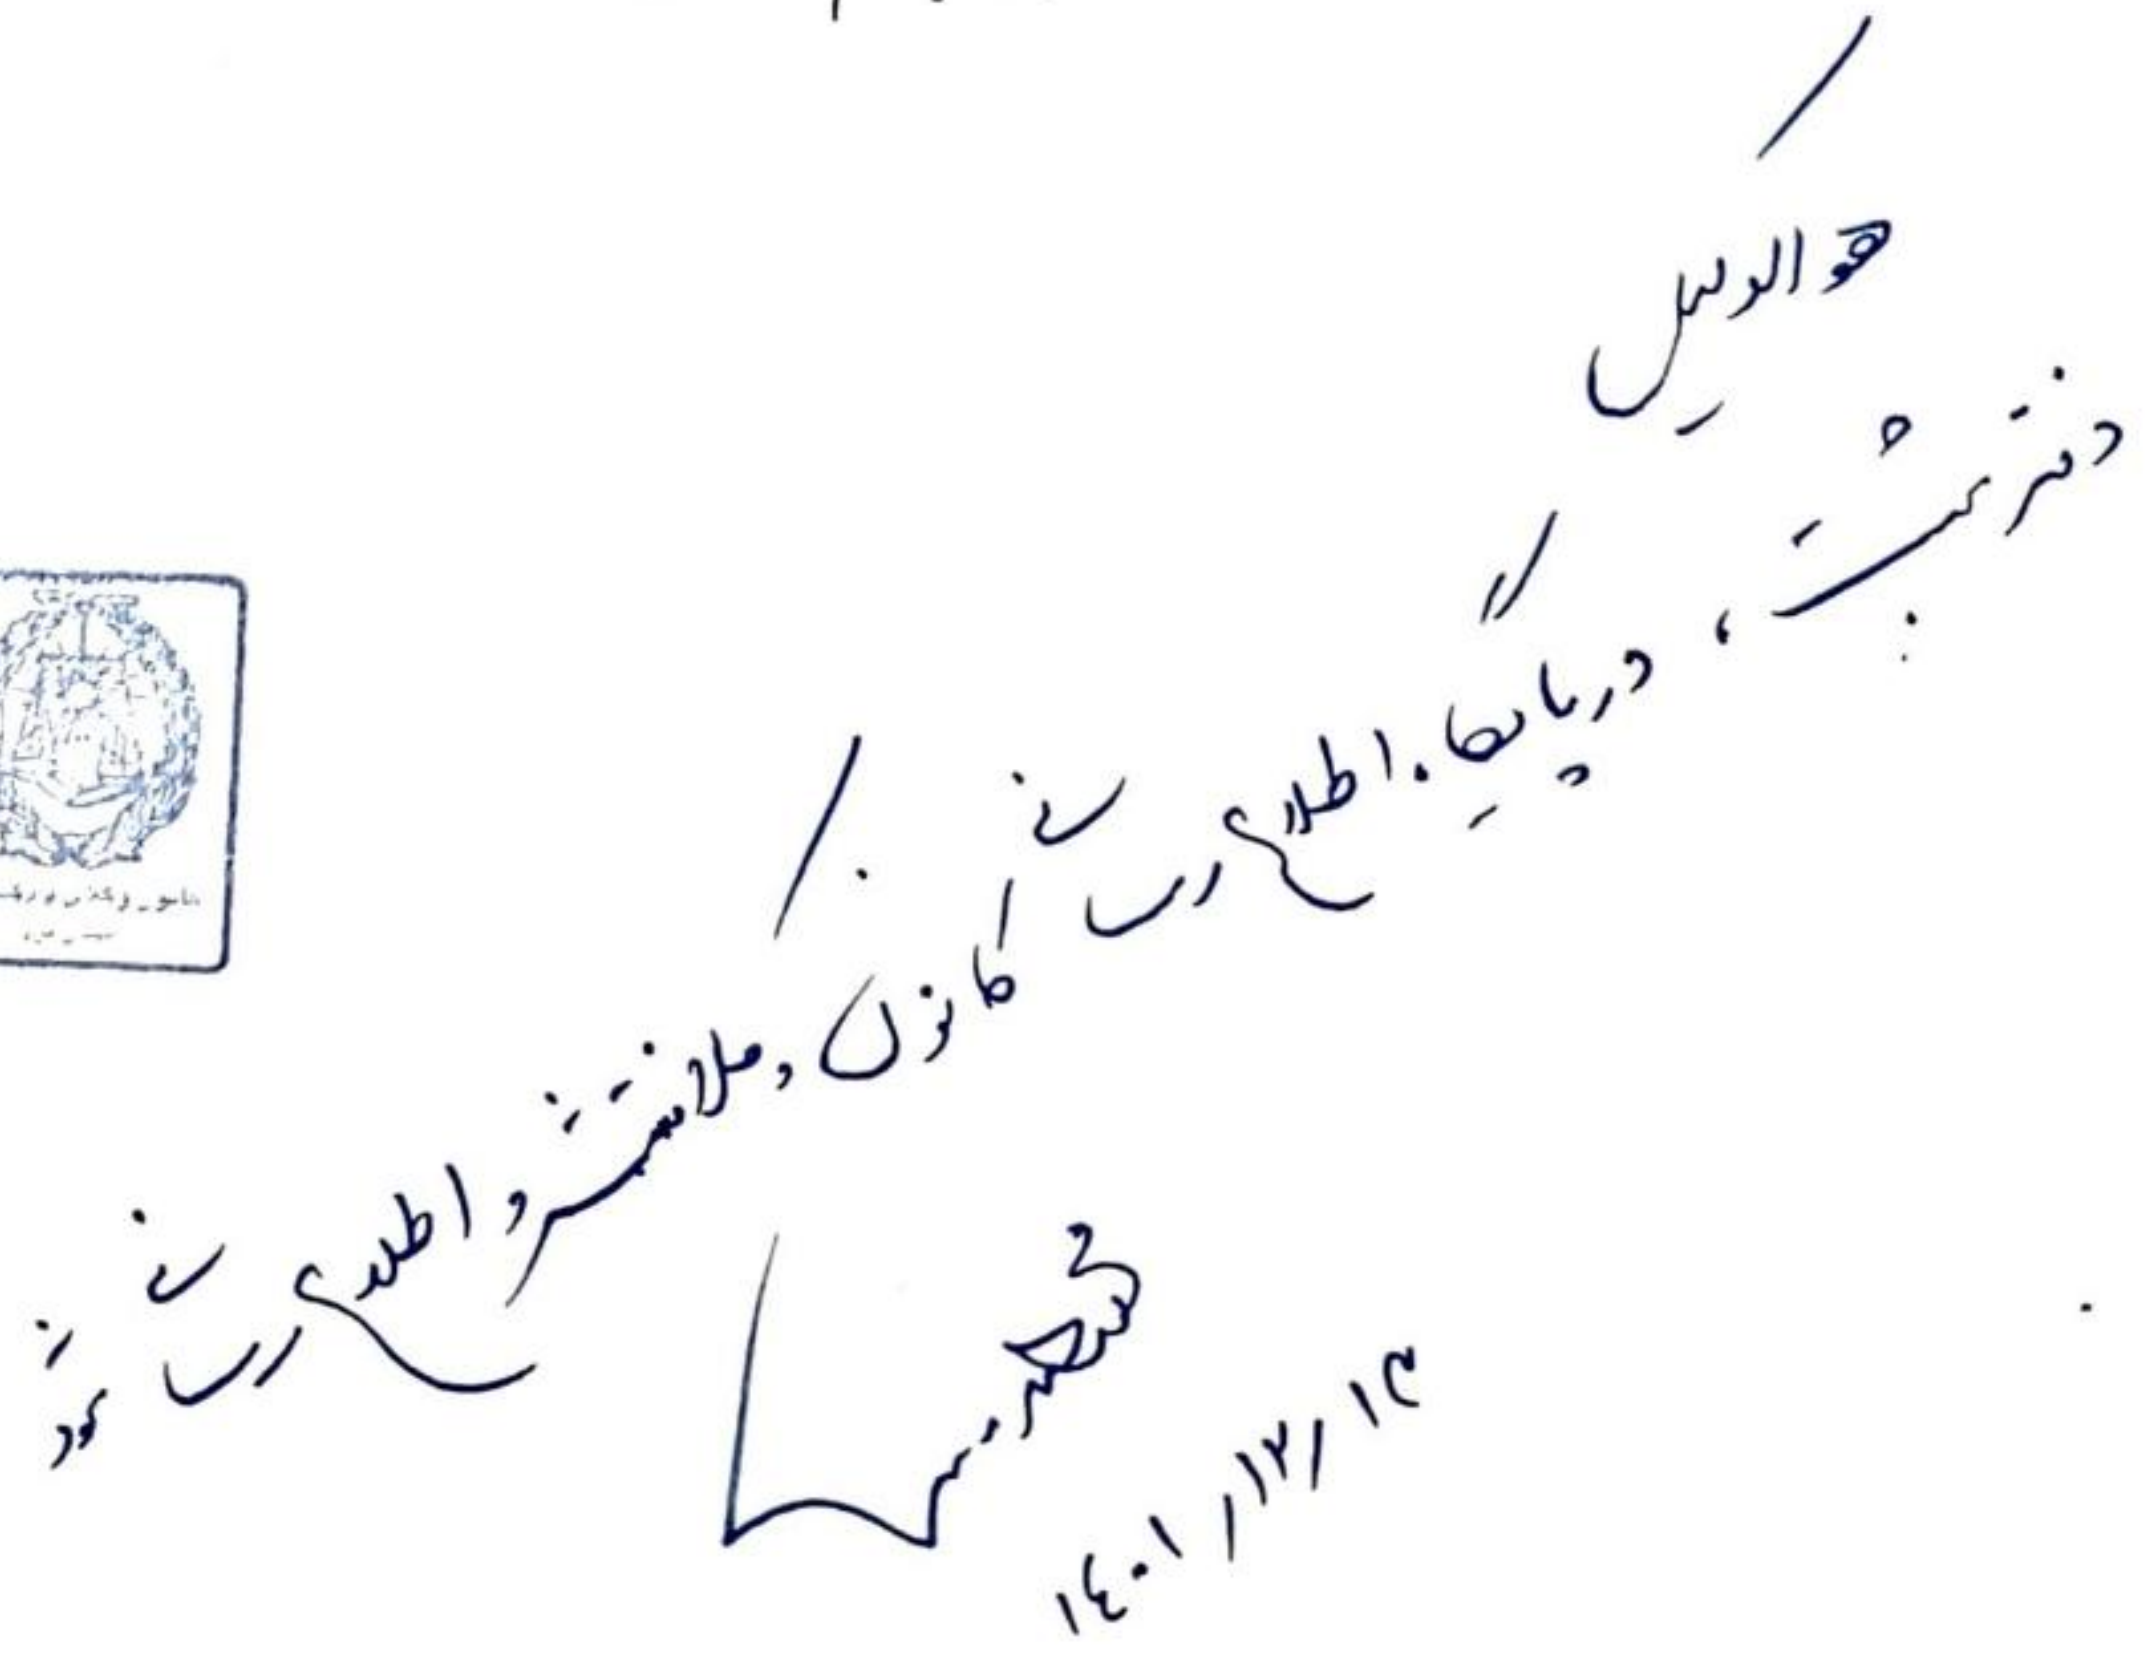 هو الوکیل
دفتر ثبت، در پایگاه اطلاع رسانی کانون و ملا منتشر و اطلاع رسانی شود
۱۴۰۱/۱۲/۱۳